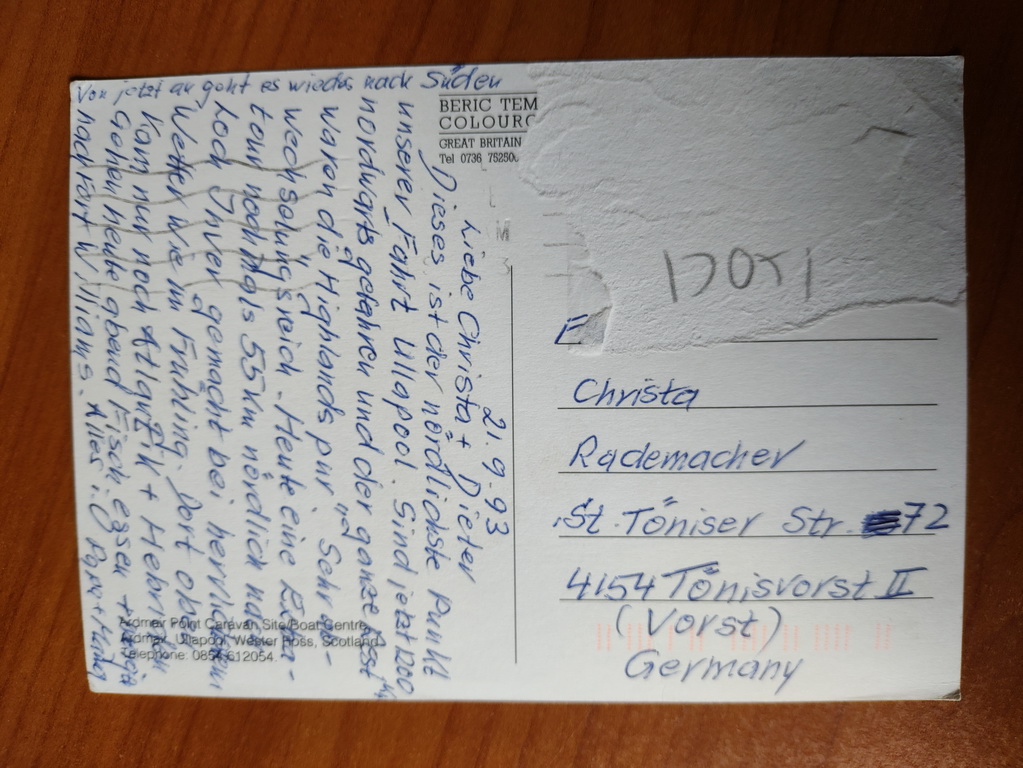 BERIC TEM
COLOURC
GREAT BRITAIN
Tel 0736
21.9.93
Liebe Christa + Dieter
Dieses ist der nördlichste Punkt
unserer Fahrt Ullapool. Sind jetzt 1200 km
nordwärts gefahren und der ganze Rest
waren die Highlands pur. Sehr
wechselungsreich. Heute eine Extra-
tour nochmals 55 km nördlich nach
Loch Inver gemacht bei herrlichem
Wetter wie im Frühling. Dort oben
kam nur noch Atlantik + Hebriden
Gehen heute abend Fisch essen +
nach Fort William. Alles
Von jetzt an geht es wieder nach Süden
Ardmair Point Caravan Site/Boat Centre,
Ardmair, Ullapool, Wester Ross, Scotland
Telephone: 0854 612054.
DOTI
F
Christa
Rademacher
St. Töniser Str. 72
4154 Tönisvorst II
(Vorst)
Germany